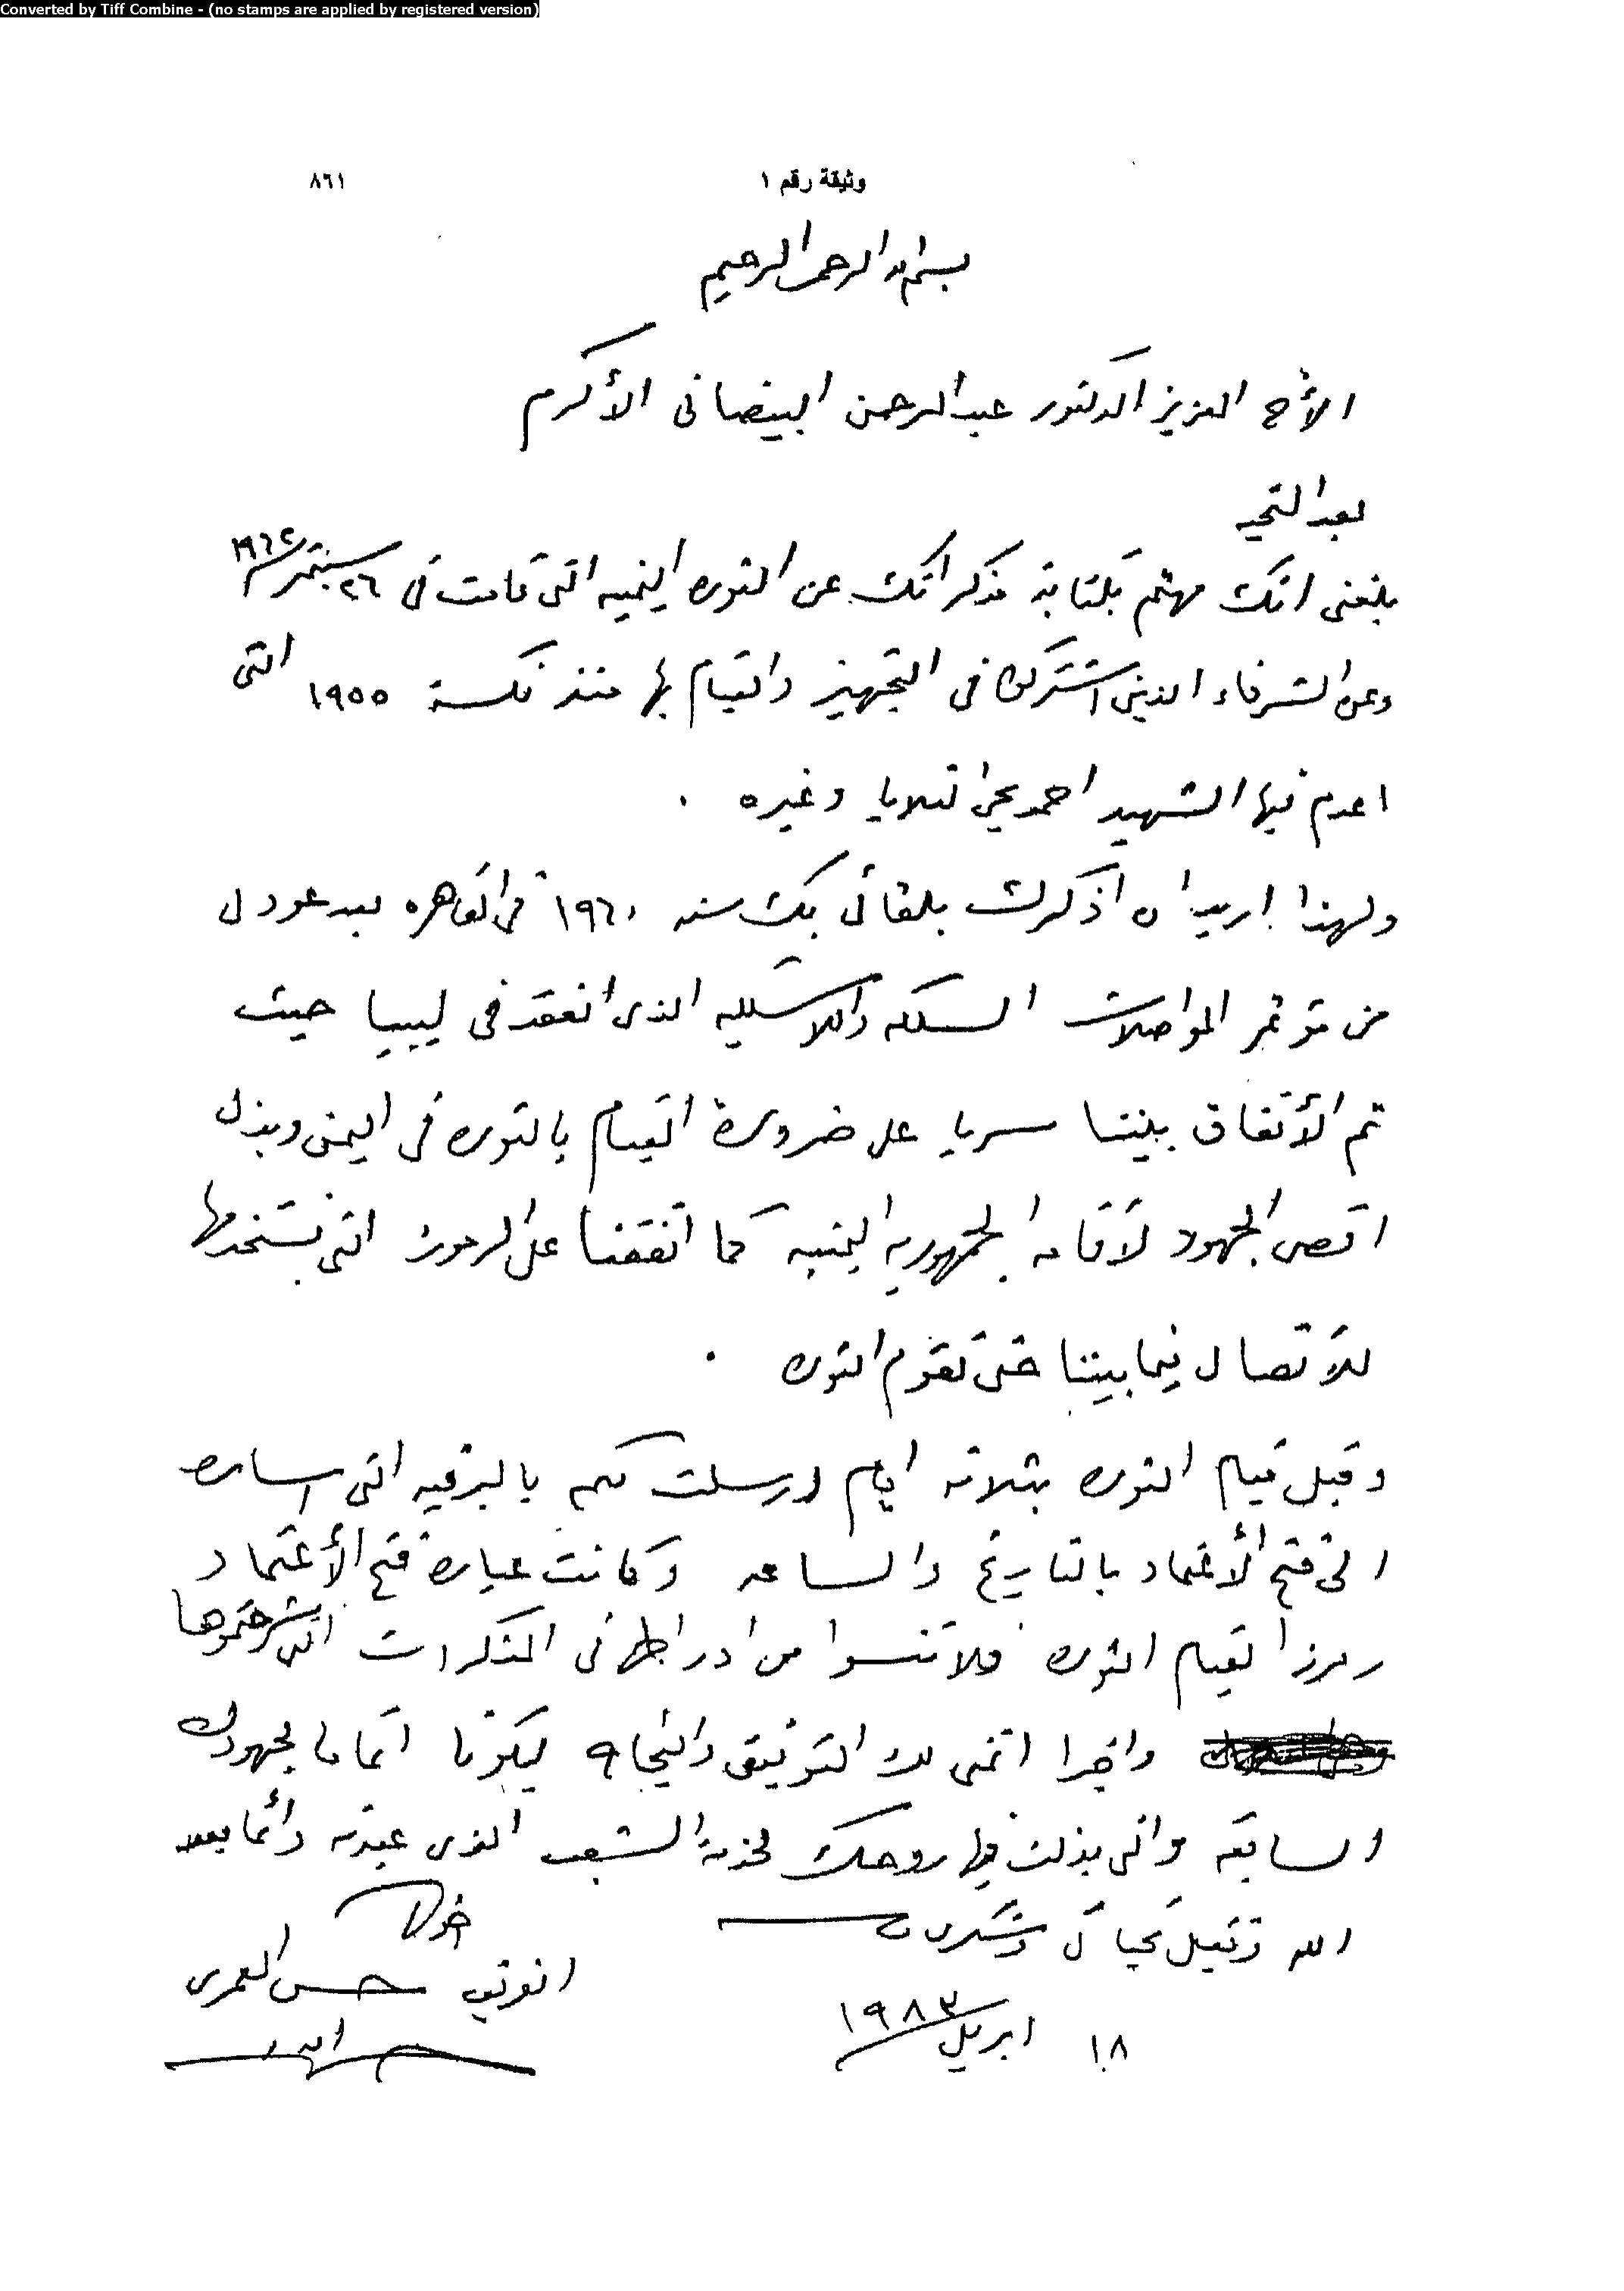 Converted by Tiff Combine - (no stamps are applied by registered version)
وثيقة رقم ١ ٨٦١
بسم الله الرحمن الرحيم
الأخ العزيز الدكتور عبدالرحمن البيضاني الأكرم
بعد التحيه
بلغني انك مهتم بكتابة مذكراتك عن الثوره اليمنيه التي قامت في ٢٦ سبتمبر ١٩٦٢
وعن الشرفاء الذين اشتركوا في التجهيز والقيام بها منذ نكسة ١٩٥٥ التي
اعدم فيها الشهيد احمد يحيى الثلايا وغيره .
ولهذا اريد ان اذكرك بلقائي بك سنه ١٩٦٠ في القاهره بعد عودتي
من مؤتمر المواصلات السلكيه واللاسلكيه الذي انعقد في ليبيا حيث
تم الأتفاق بيننا سريا على ضرورة القيام بالثوره في اليمن وبذل
اقصى الجهود لأقامه الجمهوريه اليمنيه كما اتفقنا على الرموز التي نستخدمها
للأتصال فيما بيننا حتى تقوم الثوره .
وقبل قيام الثوره بثلاثه ايام ارسلت لكم بالبرقيه التي
فتح الأعتماد بالتاريخ والساعه وكانت عبارة فتح الأعتماد
رمزا لقيام الثوره فلا تنسوا من ادراجها في المذكرات التي
واخيرا اتمنى لك التوفيق والنجاح ليكونا اتماما لجهودك
السابقه والتي بذلت فيها روحك لخدمة الشعب الذي عبدته دائما بعد
الله وتقبل تحياتي وشكري
اخوك
الفريق حسن العمري
١٨ ابريل ١٩٨٣